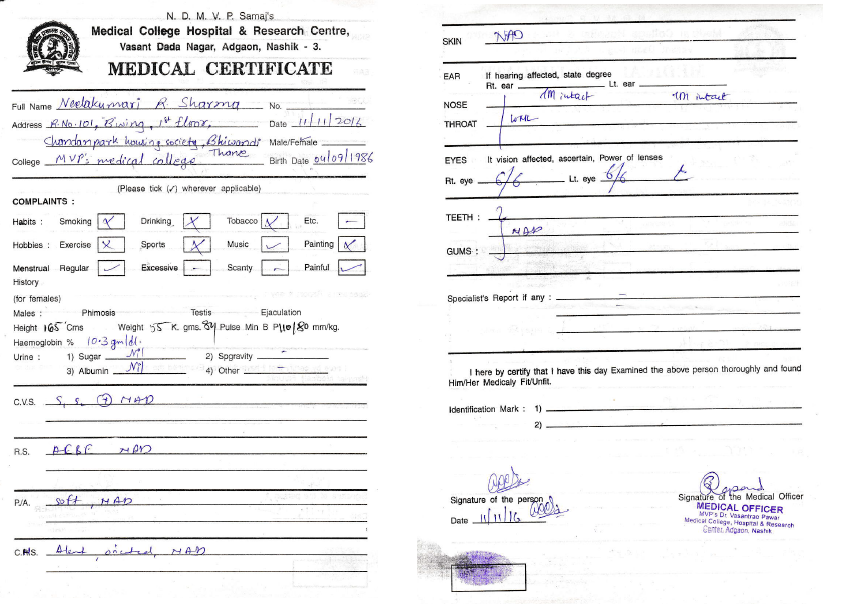 N. D. M. V. P. Samaj's
Medical College Hospital & Research Centre,
Vasant Dada Nagar, Adgaon, Nashik - 3.
MEDICAL CERTIFICATE
Full Name Neelakumari R Sharma No.
Address R.No.101, Bwing, 1st floor, Date 11/11/2016
Chandanpark housing society, Bhiwandi Thane Male/Female
College MVP's medical college Birth Date 04/09/1986
(Please tick (✓) wherever applicable)
COMPLAINTS :
Habits : Smoking X Drinking X Tobacco X Etc. -
Hobbies : Exercise X Sports X Music ✓ Painting X
Menstrual Regular ✓ Excessive - Scanty - Painful ✓
History
(for females)
Males : Phimosis Testis Ejaculation
Height 165 Cms Weight 55 K. gms. 84 Pulse Min B P 110/80 mm/kg.
Haemoglobin % 10.3 gm/dl.
Urine : 1) Sugar Nil 2) Spgravity -
3) Albumin Nil 4) Other -
C.V.S. S1 S2 + NAD
R.S. AEBE NAD
P/A. soft, NAD
C.N.S. Alert, oriented, NAD
SKIN NAD
EAR If hearing affected, state degree
Rt. ear TM intact Lt. ear TM intact
NOSE
THROAT WNL
EYES It vision affected, ascertain, Power of lenses
Rt. eye 6/6 Lt. eye 6/6
TEETH :
NAD
GUMS :
Specialist's Report if any :
I here by certify that I have this day Examined the above person thoroughly and found
Him/Her Medicaly Fit/Unfit.
Identification Mark : 1)
2)
Signature of the person
Date 11/11/16
Signature of the Medical Officer
MEDICAL OFFICER
MVP's Dr. Vasantrao Pawar
Medical College, Hospital & Research
Center, Adgaon, Nashik